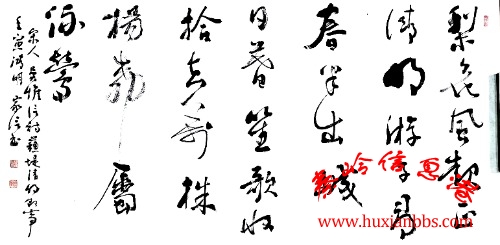 梨花风起正
清明游子寻
春半出城
日暮笙歌收
拾去万株
杨柳属
流莺
宋人吴惟信诗苏堤清明即事
壬寅清明
www.huxianbbs.com